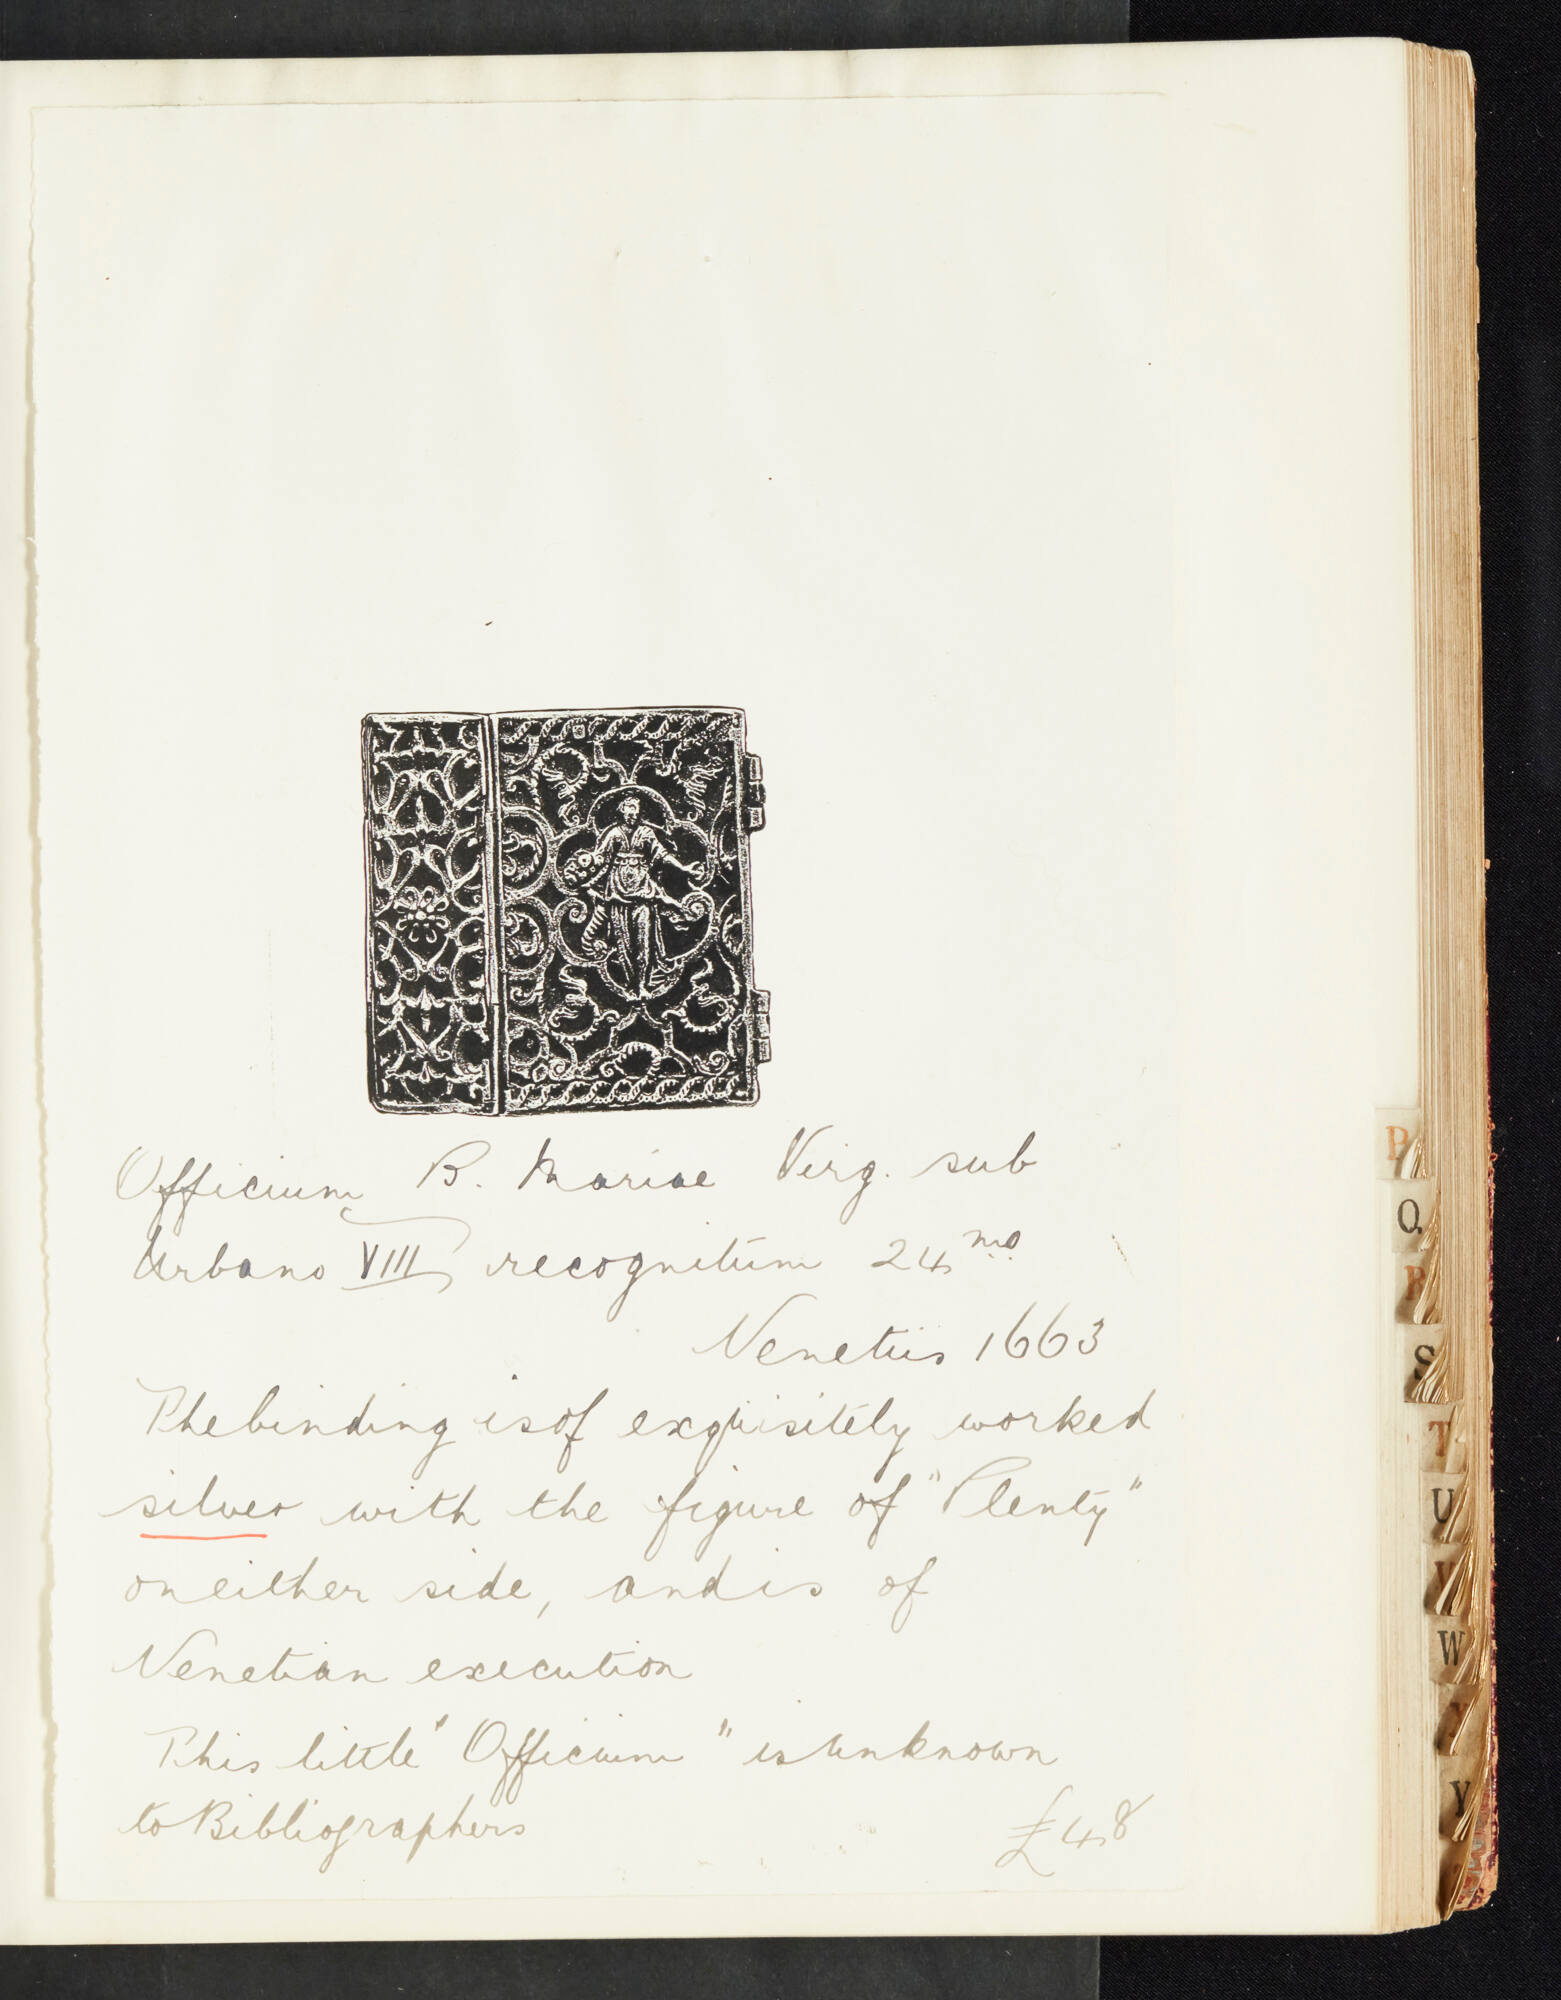 Officium B. Mariae Virg. sub
Urbano VIII recognitum 24mo
Venetiis 1663
The binding is of exquisitely worked
silver with the figure of "Plenty"
on either side, and is of
Venetian execution
This little "Officium" is unknown
to Bibliographers £48
P
Q
R
S
T
U
V
W
X
Y